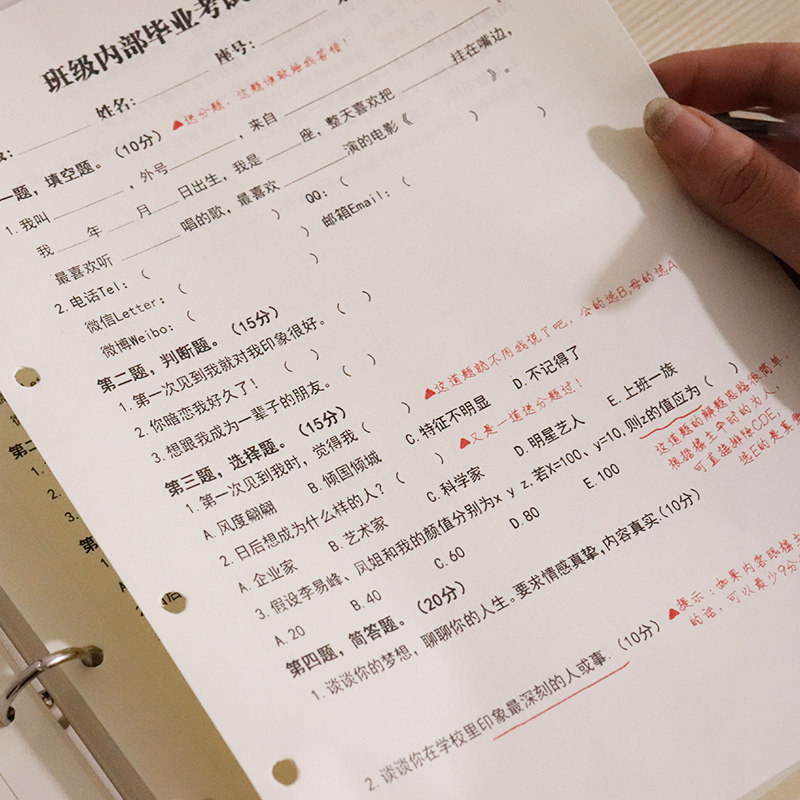 班级内部毕业考试
姓名: 座号:
▲送分题，这题谁敢给我若错！
一题，填空题。（10分）
1. 我叫 ，外号 ，来自 挂在嘴边，
我 年 月 日出生，我是 座，整天喜欢把 》。
最喜欢听 唱的歌，最喜欢 演的电影《
2. 电话Tel:（ ） QQ:（ ）
微信Letter:（ ） 邮箱Email:（ ）
微博Weibo:（ ）
第二题，判断题。（15分）
1. 第一次见到我就对我印象很好。（ ）
2. 你暗恋我好久了！（ ）
3. 想跟我成为一辈子的朋友。（ ）
第三题，选择题。（15分）
▲这道题就不用我慌了吧，公的选B,母的选A
1. 第一次见到我时，觉得我（ ）
A. 风度翩翩 B. 倾国倾城 C. 特征不明显 D. 不记得了
▲又是一道送分题过！
2. 日后想成为什么样的人？（ ）
A. 企业家 B. 艺术家 C. 科学家 D. 明星艺人 E. 上班一族
3. 假设李易峰、凤姐和我的颜值分别为x y z,若X=100、y=10,则z的值应为（ ）
A. 20 B. 40 C. 60 D. 80 E. 100
这道题的解题思路很简单，
根据楼主平时的为人，
可直接排除CDE,
选E的是真爱
第四题，简答题。（20分）
1. 谈谈你的梦想，聊聊你的人生。要求情感真挚，内容真实.（10分）
▲提示：如果内容跟楼主
的话，可以最少9分
2. 谈谈你在学校里印象最深刻的人或事.（10分）